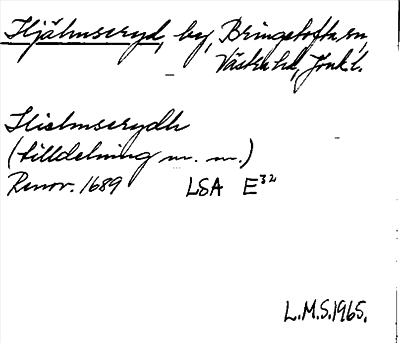 Hjälmseryd, by, Bringetofta sn,
Västra hd, Jönk. l.
Hielmserydh
(tilldelning m. m.)
Renov. 1689 LSA E³²
L.M.S. 1965.